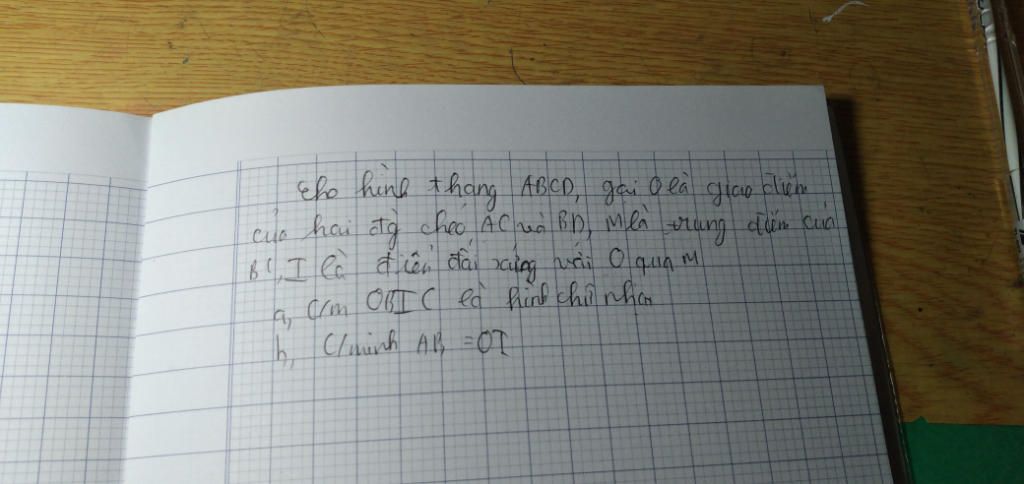 Cho hình thang ABCD, gọi O là giao điểm
của hai đg chéo AC và BD, M là trung điểm của
BC, I là điểm đối xứng với O qua M
a, C/m OBIC là hình chữ nhật
b, C/minh AB = OI